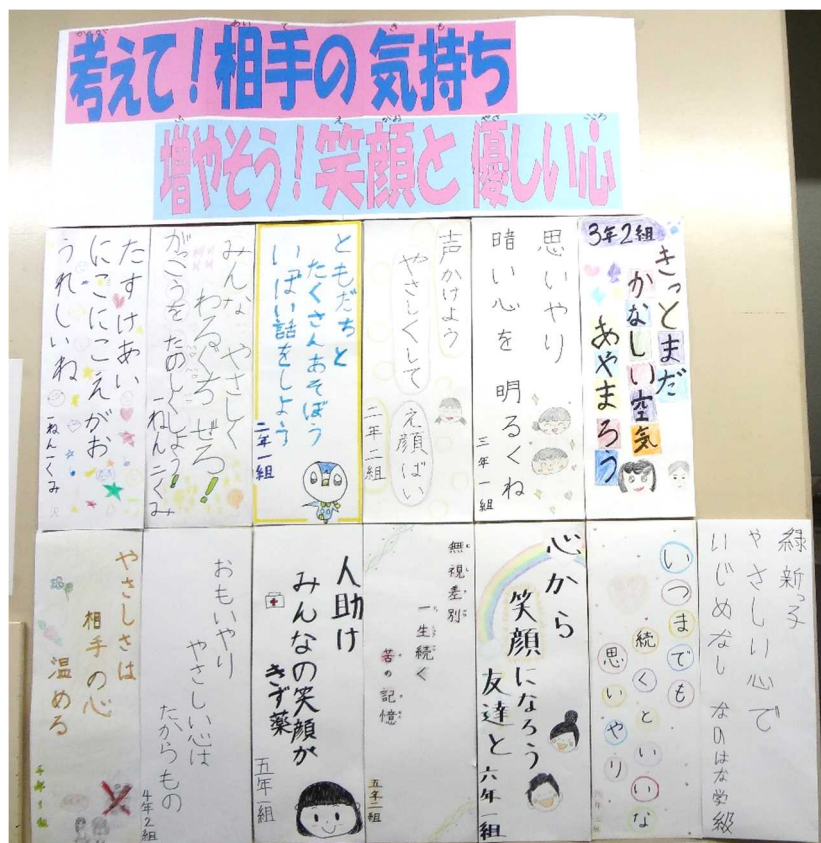 考えて！相手の気持ち
増やそう！笑顔と優しい心
3年2組
きっとまだ
かなしい空気
あやまろう
思いやり
暗い心を
明るくね
三年一組
声かけよう
やさしくして
え顔ばい
二年二組
ともだちと
たくさんあそぼう
いっぱい話をしよう
二年一組
みんな やさしく
わるぐち ゼロ！
がっこうを たのしくしよう！
一ねん二くみ
たすけあい
にこにこえがお
うれしいね
一ねん一くみ
緑新っ子
やさしい心で
いじめなし
なのはな学級
いつまでも
続くといいな
思いやり
心から
笑顔になろう
友達と
六年一組
無視差別
一生続く
苦の記憶
五年二組
人助け
みんなの笑顔が
きず薬
五年一組
おもいやり
やさしい心は
たからもの
4年2組
やさしさは
相手の心
温める